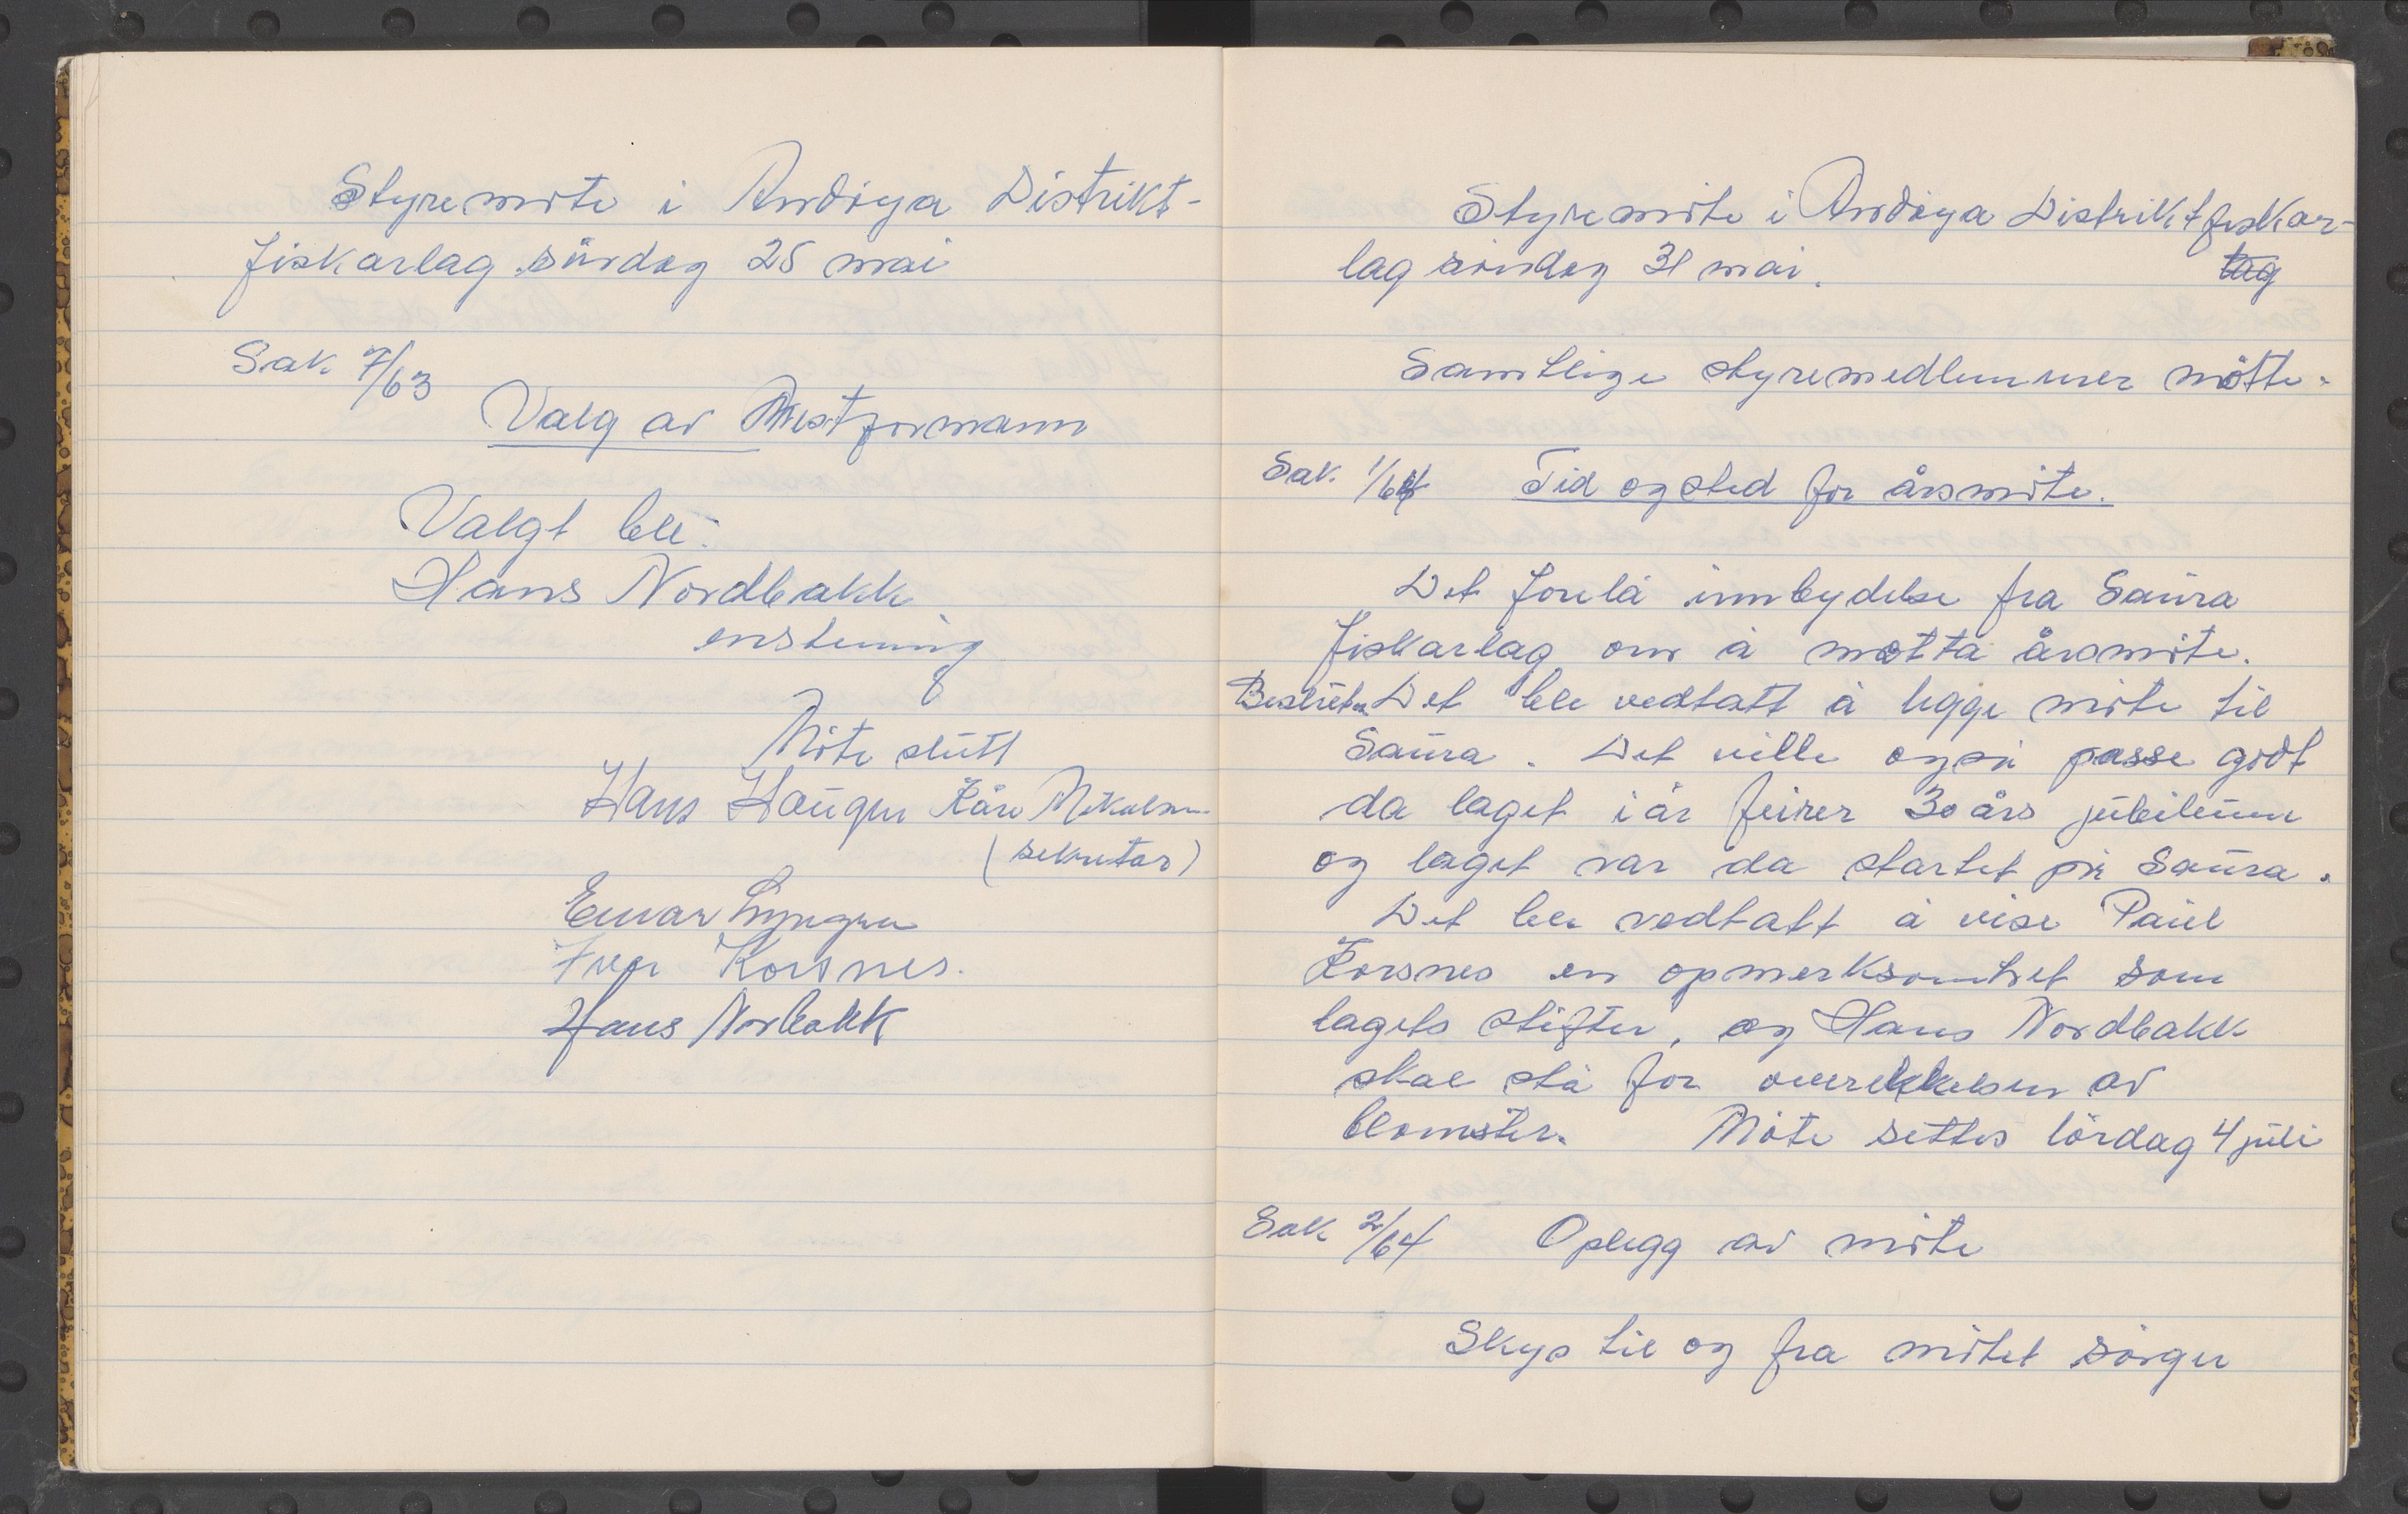 Styremöte i Andöya Distrikt-
fiskarlag söndag 25 mai
Sak. 7/63
Valg av Nestformann
Valgt ble:
Hans Nordbakk
enstemig
Möte slutt
Hans Haugen Kåre Mikalsen
(sekretær)
Einar Lyngen
Ivar Korsnes.
Hans Norbakk
Styremöte i Andöya Distriktfiskar-
lag söndag 31 mai. lag
Samtlige styremedlemmer mötte.
Sak. 1/64 Tid og sted for årsmöte.
Det forelå innbydelse fra Saura
fiskarlag om å motta årsmöte.
Beslutn. Det ble vedtatt å legge möte til
Saura. Det ville også passe godt
da laget i år feirer 30 års jubileum
og laget var da startet på Saura.
Det ble vedtatt å vise Paul
Korsnes en opmerksomhet som
lagets stifter, og Hans Nordbakk
skal stå for overekkelsen av
blomster. Möte settes lördag 4 juli
Sak 2/64 Oplegg av möte
Skyss til og fra mötet sörger